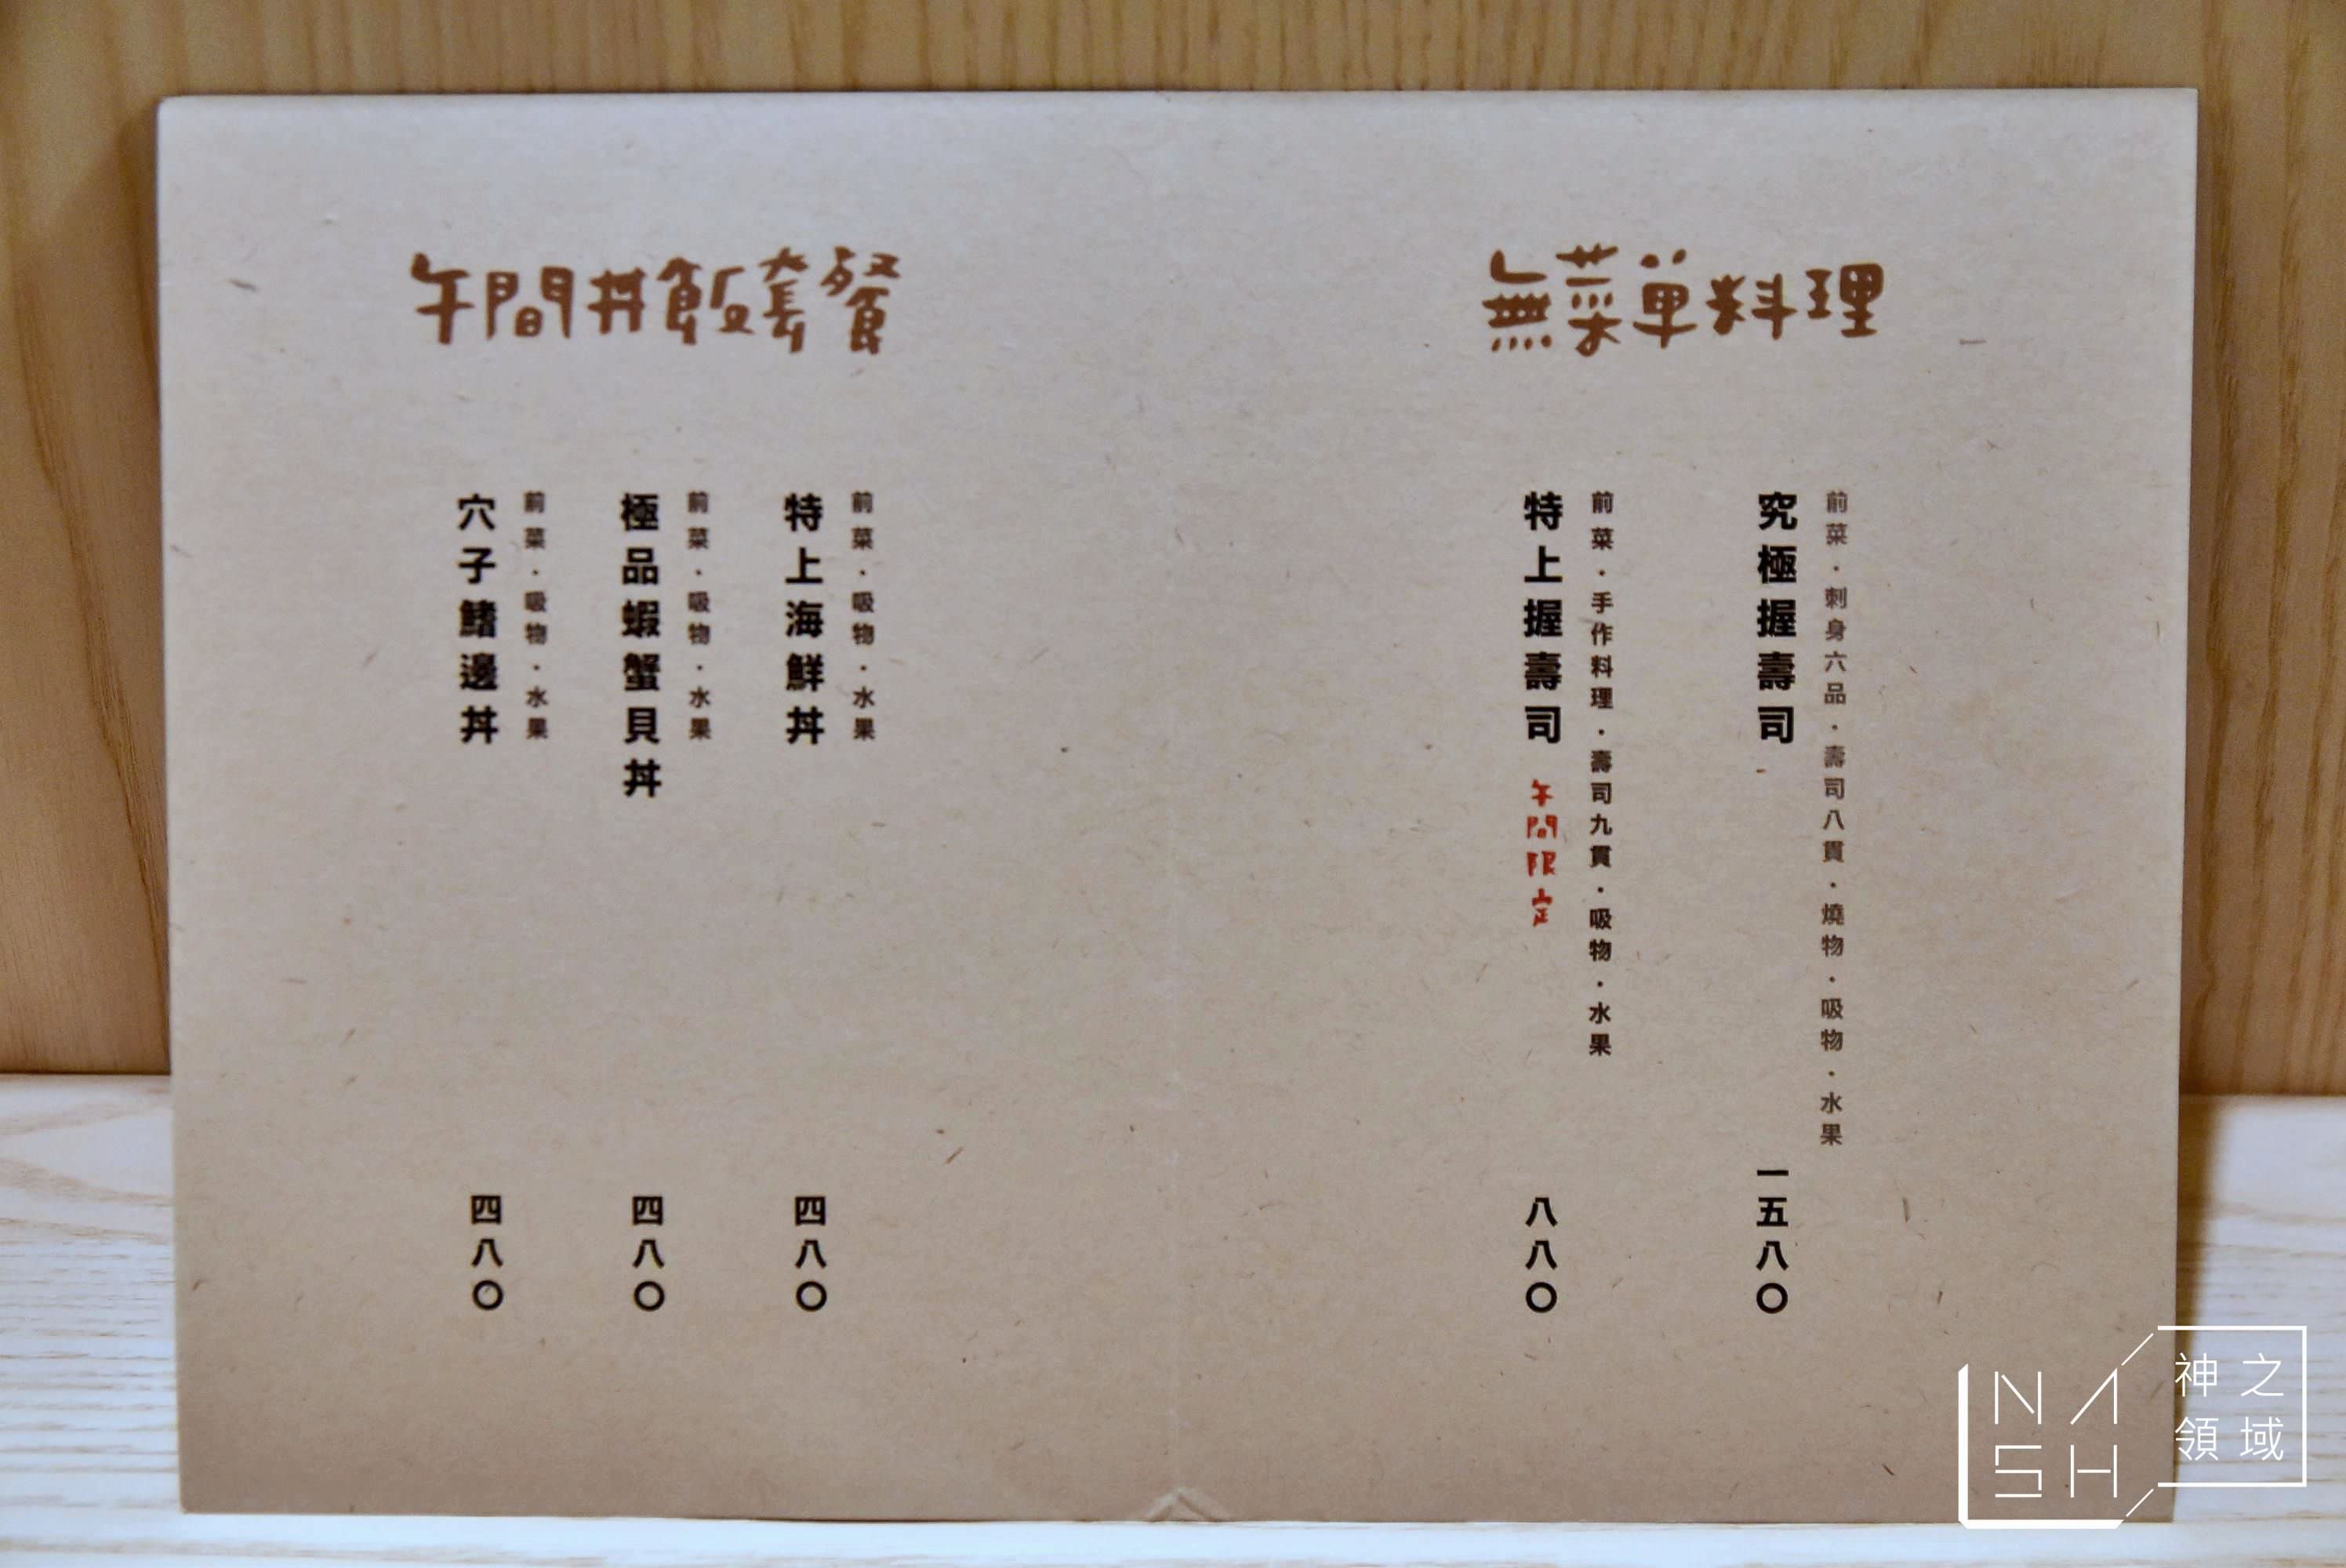 無菜單料理
前菜・刺身六品・壽司八貫・燒物・吸物・水果
究極握壽司
一五八〇
前菜・手作料理・壽司九貫・吸物・水果
特上握壽司
午間限定
八八〇
午間丼飯套餐
前菜・吸物・水果
特上海鮮丼
四八〇
前菜・吸物・水果
極品蝦蟹貝丼
四八〇
前菜・吸物・水果
穴子鰭邊丼
四八〇
NASH
神之
領域